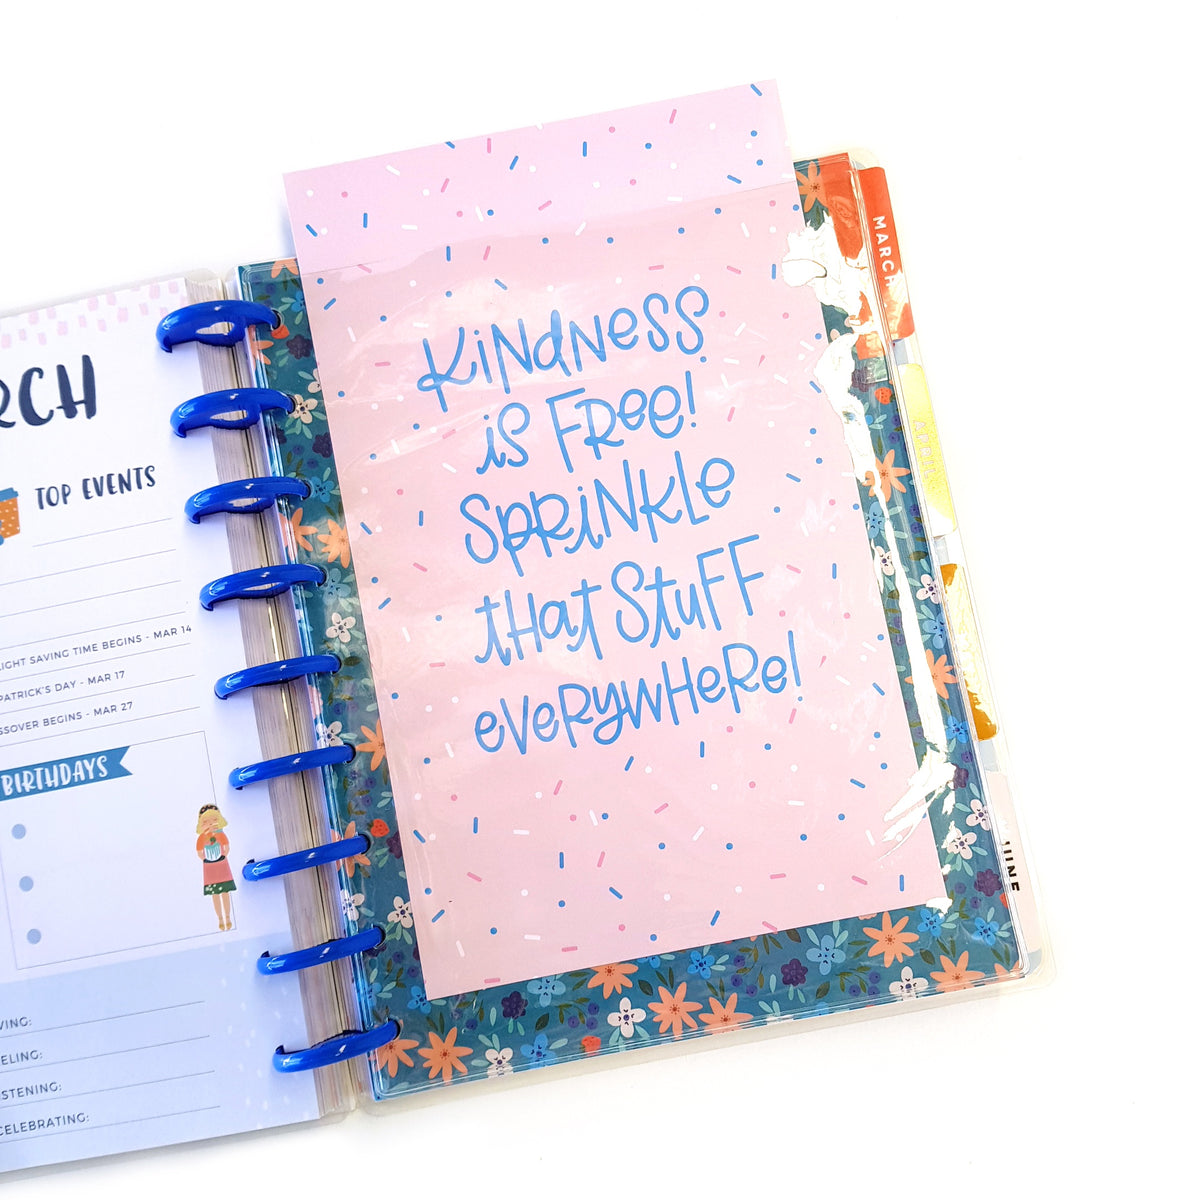 RCH
TOP EVENTS
LIGHT SAVING TIME BEGINS - MAR 14
PATRICK'S DAY - MAR 17
SSOVER BEGINS - MAR 27
BIRTHDAYS
VING:
ELING:
STENING:
CELEBRATING:
KiNdNESS
iS FRee!
SPRiNKLe
tHat StuFF
eVeRYWHeRe!
MARCH
APRIL
JUNE